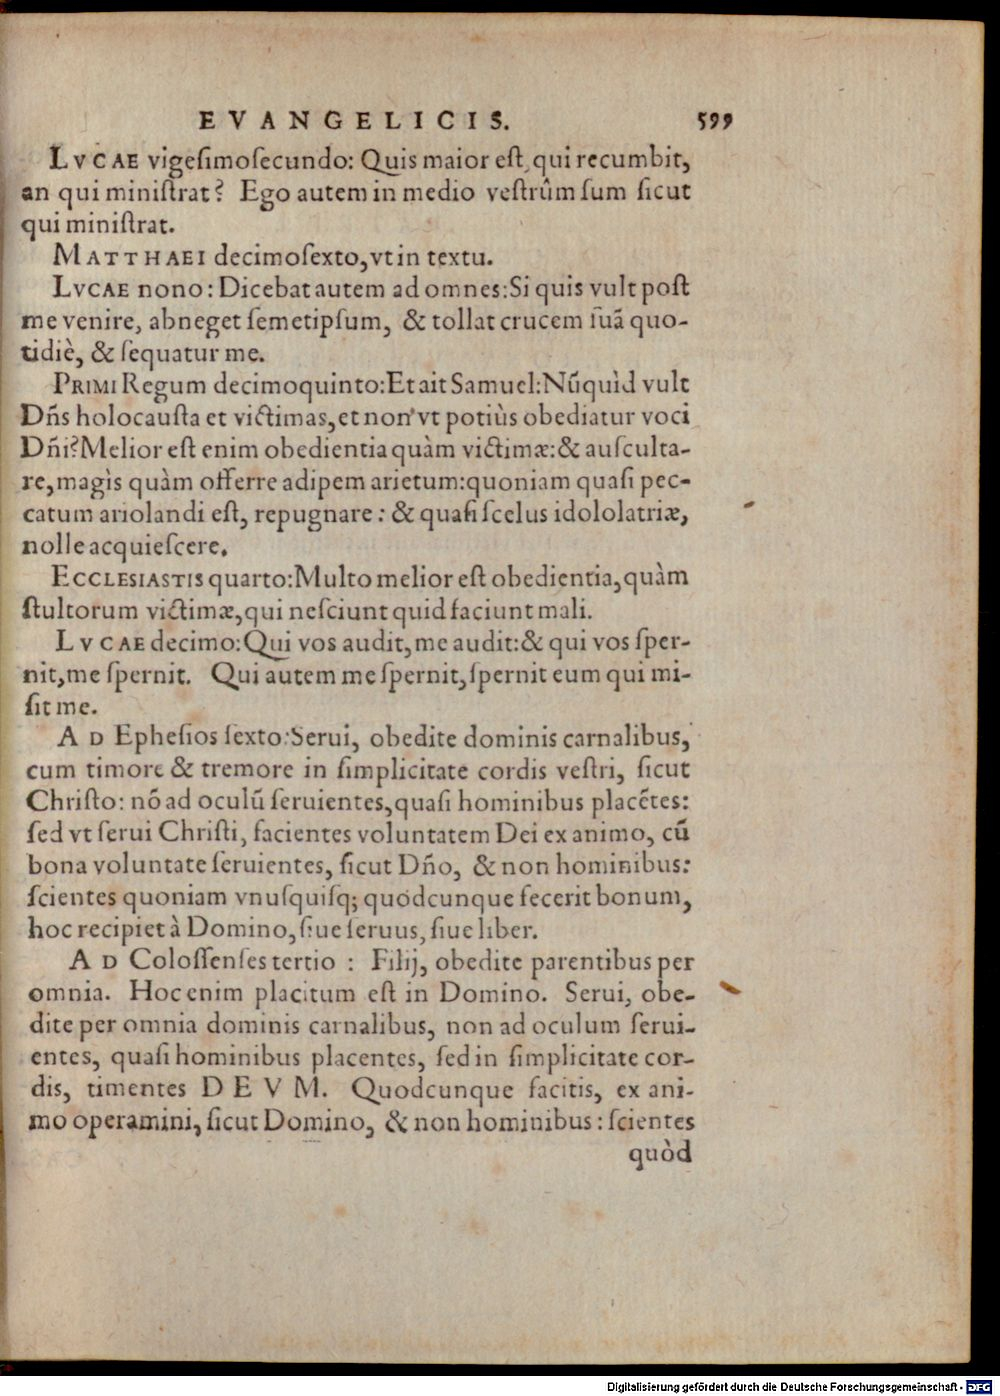 EVANGELICIS. 599
LVCAE vigeſimoſecundo: Quis maior eſt, qui recumbit,
an qui miniſtrat? Ego autem in medio veſtrûm ſum ſicut
qui miniſtrat.
MATTHAEI decimoſexto, vt in textu.
LVCAE nono: Dicebat autem ad omnes: Si quis vult poſt
me venire, abneget ſemetipſum, & tollat crucem ſuã quo-
tidiè, & ſequatur me.
PRIMI Regum decimoquinto: Et ait Samuel: Nũquìd vult
Dñs holocauſta et victimas, et non vt potiùs obediatur voci
Dñi? Melior eſt enim obedientia quàm victimæ: & auſculta-
re, magìs quàm offerre adipem arietum: quoniam quaſi pec-
catum ariolandi eſt, repugnare: & quaſi ſcelus idololatriæ,
nolle acquieſcere.
ECCLESIASTIS quarto: Multo melior eſt obedientia, quàm
ſtultorum victimæ, qui neſciunt quid faciunt mali.
LVCAE decimo: Qui vos audit, me audit: & qui vos ſper-
nit, me ſpernit. Qui autem me ſpernit, ſpernit eum qui mi-
ſit me.
AD Epheſios ſexto: Serui, obedite dominis carnalibus,
cum timore & tremore in ſimplicitate cordis veſtri, ſicut
Chriſto: nõ ad oculũ ſeruientes, quaſi hominibus placẽtes:
ſed vt ſerui Chriſti, facientes voluntatem Dei ex animo, cũ
bona voluntate ſeruientes, ſicut Dño, & non hominibus:
ſcientes quoniam vnuſquiſq; quodcunque fecerit bonum,
hoc recipiet à Domino, ſiue ſeruus, ſiue liber.
AD Coloſſenſes tertio: Filij, obedite parentibus per
omnia. Hoc enim placitum eſt in Domino. Serui, obe-
dite per omnia dominis carnalibus, non ad oculum ſerui-
entes, quaſi hominibus placentes, ſed in ſimplicitate cor-
dis, timentes DEVM. Quodcunque facitis, ex ani-
mo operamini, ſicut Domino, & non hominibus: ſcientes
quòd
Digitalisierung gefördert durch die Deutsche Forschungsgemeinschaft - DFG